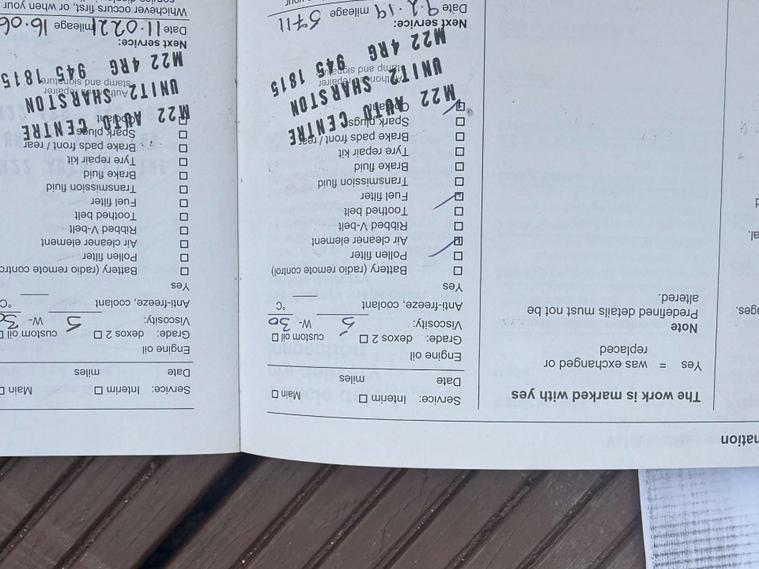 The work is marked with yes
Yes = was exchanged or
replaced
Note
Predefined details must not be
altered.
Service: Interim Main
Date miles
Engine oil
Grade: dexos 2 custom oil
Viscosity: 5 W- 30
Anti-freeze, coolant °C
Yes
Battery (radio remote control)
Pollen filter
Air cleaner element
Ribbed V-belt
Toothed belt
Fuel filter
Transmission fluid
Brake fluid
Tyre repair kit
Brake pads front / rear
Spark plugs
M22 AUTO CENTRE
UNIT2 SHARSTON
M22 4RG 945 1815
Next service:
Date 9.2.19 mileage 5711
Service: Interim Main
Date miles
Engine oil
Grade: dexos 2 custom oil
Viscosity: 5 W- 30
Anti-freeze, coolant °C
Yes
Battery (radio remote
Pollen filter
Air cleaner element
Ribbed V-belt
Toothed belt
Fuel filter
Transmission fluid
Brake fluid
Tyre repair kit
Brake pads front / rear
Spark plugs
M22 AUTO CENTRE
UNIT2 SHARSTON
M22 4RG 945 1815
Next service:
Date mileage
Whichever occurs first, or when your